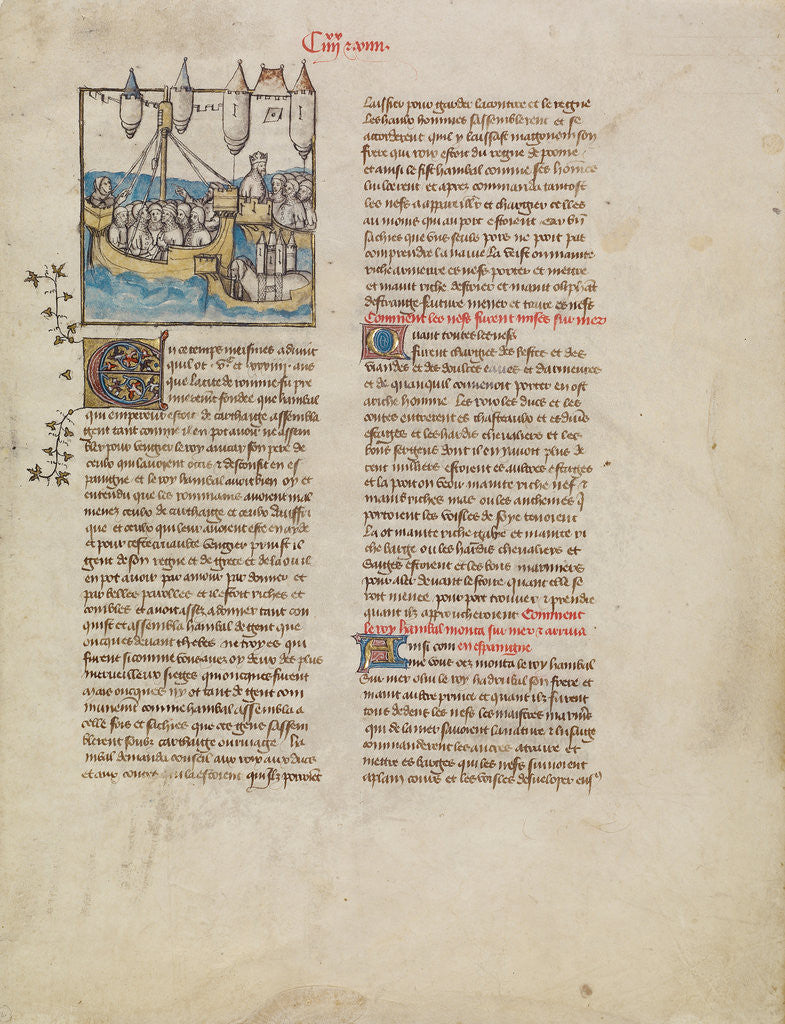 C iiii xx et xviii.
En ce temps meismes advint
quil ot .Vc. et xxxiiii. ans
que la cite de romme fu pre
mierement fondee que hanibal
qui empereur estoit de carthaige assembla
gent tant comme il en pot avoir ne assem
bler pour vengier le roy amicar son pere de
ceulx qui lavoient occis et desconfit en es
paingne et le roy hanibal avoit bien oy et
entendu que les rommains avoient mal
menez ceulx de carthaige et ceulx dauffri
que et ceulx qui leur avoient este en ayde
et pour ceste viaulte vengier prinst il
gent de son regne et de grece et de la ou il
en pot avoir par amour par donner et
par belles parolles et il estoit riches et
combles et avoit assez a donner tant con
quist et assembla hanibal de gent que
oncques devant thebes ne troyes qui
furent si comme vous avez oy deux des plus
merveilleux sieges qui oncques furent
Mais oncques ny ot tant de gent com
munement comme hanibal assembla a
celle fois et sachies que ces gens sassem
blerent soubz carthaige ou rivaige ha
nibal demanda conseil aux roys aux ducs
et aux contes qui la estoient quilz pooient
laissier pour garder la contree et le regne
les haulx hommes sassemblerent et se
accorderent quil y laissast magonem son
frere qui roys estoit du regne de
et ainsi le fist hanibal comme ses hommes
lui loerent et apres commanda tantost
les nefs a appareillier et chargier celles
au moins qui au port estoient car bien
sachies que uns seuls pors ne pooit pas
comprendre la navie La veist on mainte
riche armeure es nefs porter et mettre
et maint riche destrier et maint olifhant
destrange faiture mener et traire es nefs
Comment les nefs furent mises sur mer
Quant toutes les nefs
furent chargies des bestes et des
viandes et des doulces eaues et darmeures
et de quanquil convenoit porter en ost
a riche homme Les roys les ducs et les
contes entrerent es chasteaulx et es
estaiges et les hardis chevaliers et les
bons sergens dont il en y avoit plus de
cent milliers estoient es aultres estaiges
et la pooit on veoir mainte riche nef et
mains riches mas ou les anthemes
portoient les voisles de soye tenoient
La ot mainte riche galye et mainte ri
che barge ou les hardis chevaliers et
saiges estoient et les bons marinniers
pour aler devant lestoire quant elle se
roit menee pour port trouver et prendre
quant ilz approucheroient Comment
le roy hanibal monta sur mer et arriva
Ainsi com en espaingne
me vous oez monta le roy hanibal
sur mer o lui le roy hadrubal son frere et
maint aultre prince et quant ilz furent
tous dedens les nefs les maistres marins
qui de la mer savoient la nature et lusaige
commanderent les ancres a traire et
mettre es barges qui les nefs suivoient
a plain cours et les voisles desveloper